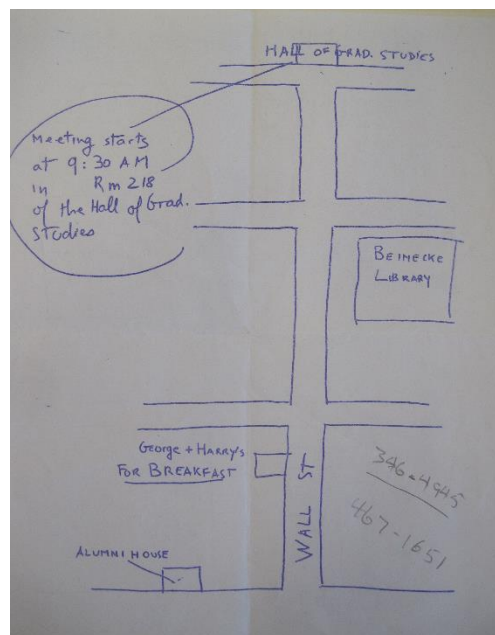 HALL OF GRAD. STUDIES
Meeting starts
at 9:30 AM
in Rm 218
of the Hall of Grad.
Studies
BEINECKE
LIBRARY
George + HARRY'S
FOR BREAKFAST
WALL ST
346-4945
467-1651
ALUMNI HOUSE